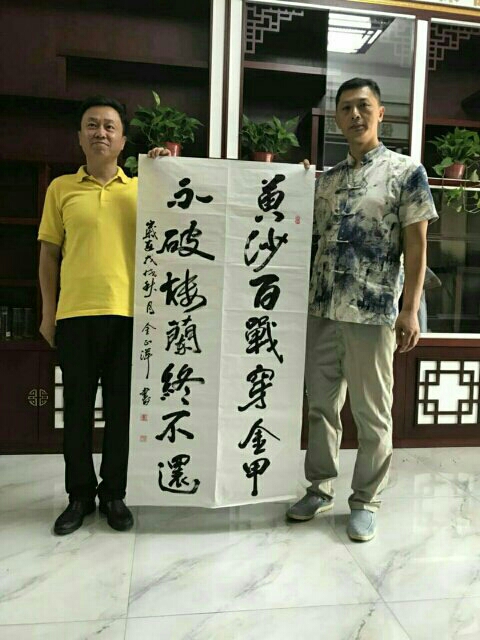 黄沙百戰穿金甲
不破楼蘭終不還
歲在戊戌秋月 金 書